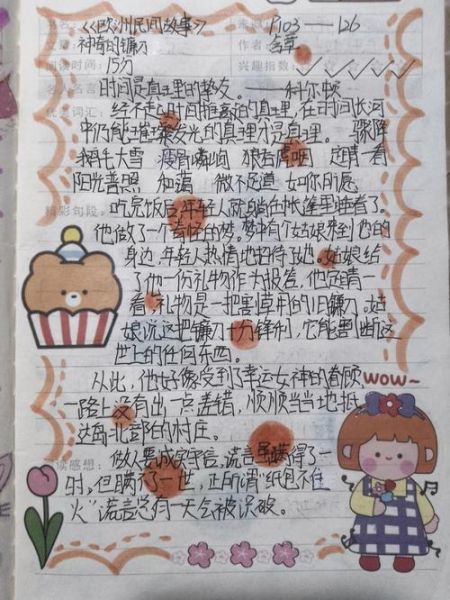 书名：《欧洲民间故事》 P103——126
文章：神奇的镰刀 作者：
阅读时间：15分 兴趣指数：✓✓✓✓✓
名人名言：时间是真理的挚友。——科尔顿
经不起时间推敲的真理，在时间长河
中仍能璀璨发光的真理才是真理。 骤降
鹅毛大雪 狼吞虎咽 定睛一看
阳光普照 和蔼 微不足道 如你所愿
精彩句段：吃完饭后年轻人就躺在帐篷里睡着了。
他做了一个奇怪的梦。梦中有个姑娘来到他的
身边，年轻人热情地招待了她。姑娘给
了他一份礼物作为报答，他定睛一
看，礼物是一把割草用的旧镰刀。姑
娘说这把镰刀十分锋利，它能割断这
世上的任何东西。
从此，他好像受到了幸运女神的眷顾， wow~
一路上没有出一点差错，顺顺当当地抵
达岛北部的村庄。
阅读感想：做人要诚实守信，谎言瞒得了一
时，但瞒不了一世，正所谓“纸包不住
火”谎言总有一天会被识破。